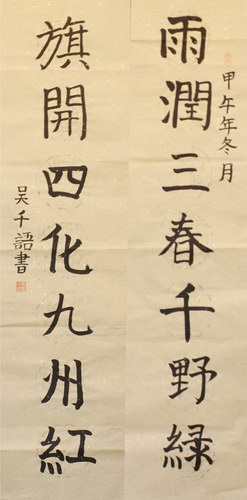 甲午年冬月
雨潤三春千野緑
旗開四化九州紅
吴千語書